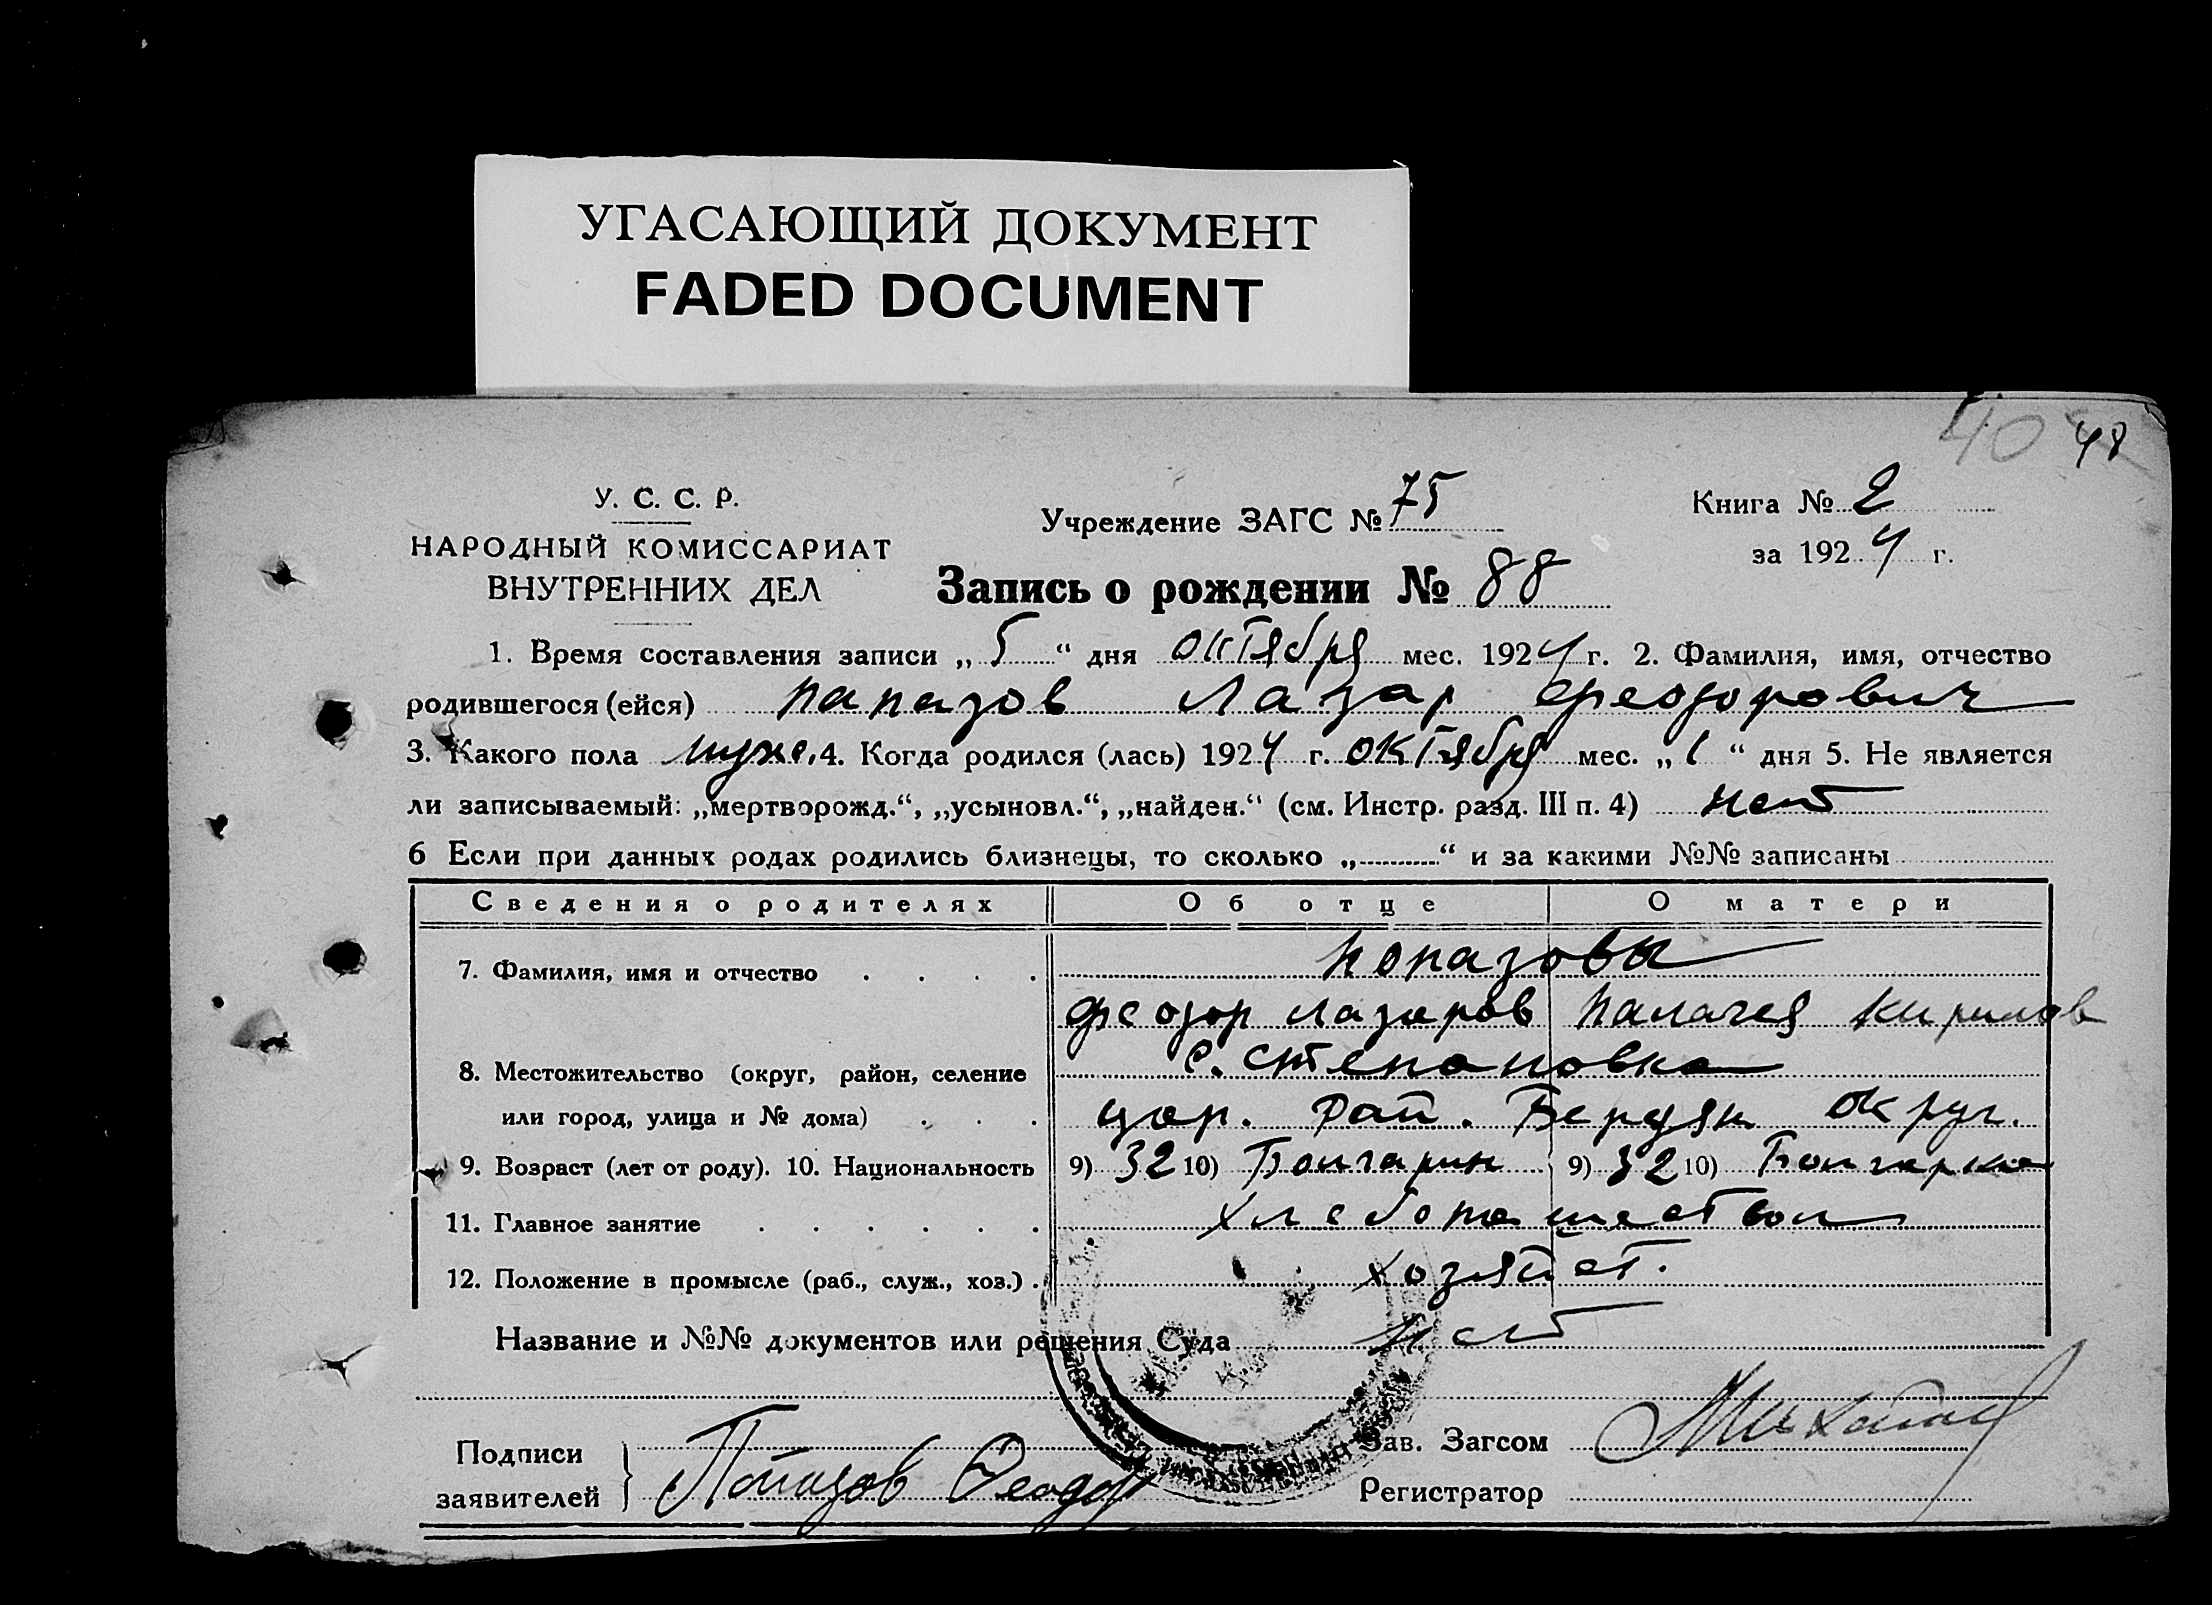 УГАСАЮЩИЙ ДОКУМЕНТ
FADED DOCUMENT
40 48
У. С. С. Р.
НАРОДНЫЙ КОМИССАРИАТ
ВНУТРЕННИХ ДЕЛ
Учреждение ЗАГС № 75
Книга № 2
за 1924 г.
Запись о рождении № 88
1. Время составления записи „ 5 “ дня октября мес. 1924 г. 2. Фамилия, имя, отчество
родившегося (ейся) Папазов Лазар Феодорович
3. Какого пола муж. 4. Когда родился (лась) 1924 г. октября мес. „ 1 “ дня 5. Не является
ли записываемый: „мертворожд.“, „усыновл.“, „найден.“ (см. Инстр. разд. III п. 4) нет
6 Если при данных родах родились близнецы, то сколько „ “ и за какими №№ записаны
Сведения о родителях Об отце О матери
7. Фамилия, имя и отчество . . . . Попазовы
Феодор Лазаров Палагея Кирилов
8. Местожительство (округ, район, селение с. Степановка
или город, улица и № дома) . . . цар. рай. Бердян округ.
9. Возраст (лет от роду). 10. Национальность 9) 32 10) Болгарин 9) 32 10) Болгарка
11. Главное занятие . . . . . . Хлебопашеством
12. Положение в промысле (раб., служ., хоз.) . хозяйст.
Название и №№ документов или решения Суда нет
Подписи
заявителей } Папазов Феодор
Зав. Загсом
Регистратор